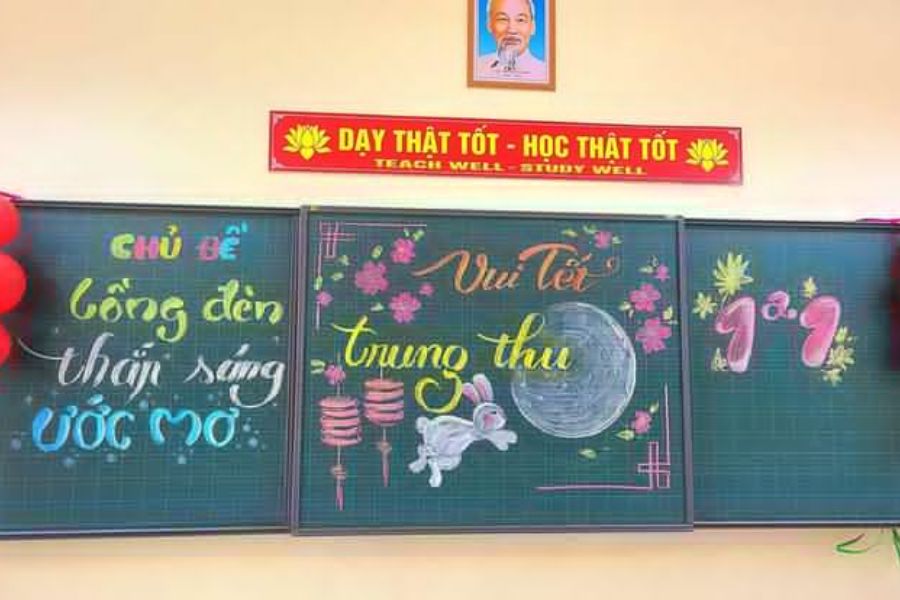 DẠY THẬT TỐT - HỌC THẬT TỐT
TEACH WELL - STUDY WELL
CHỦ ĐỀ
Lồng đèn
thắp sáng
ƯỚC MƠ
Vui Tết
trung thu
1a.1